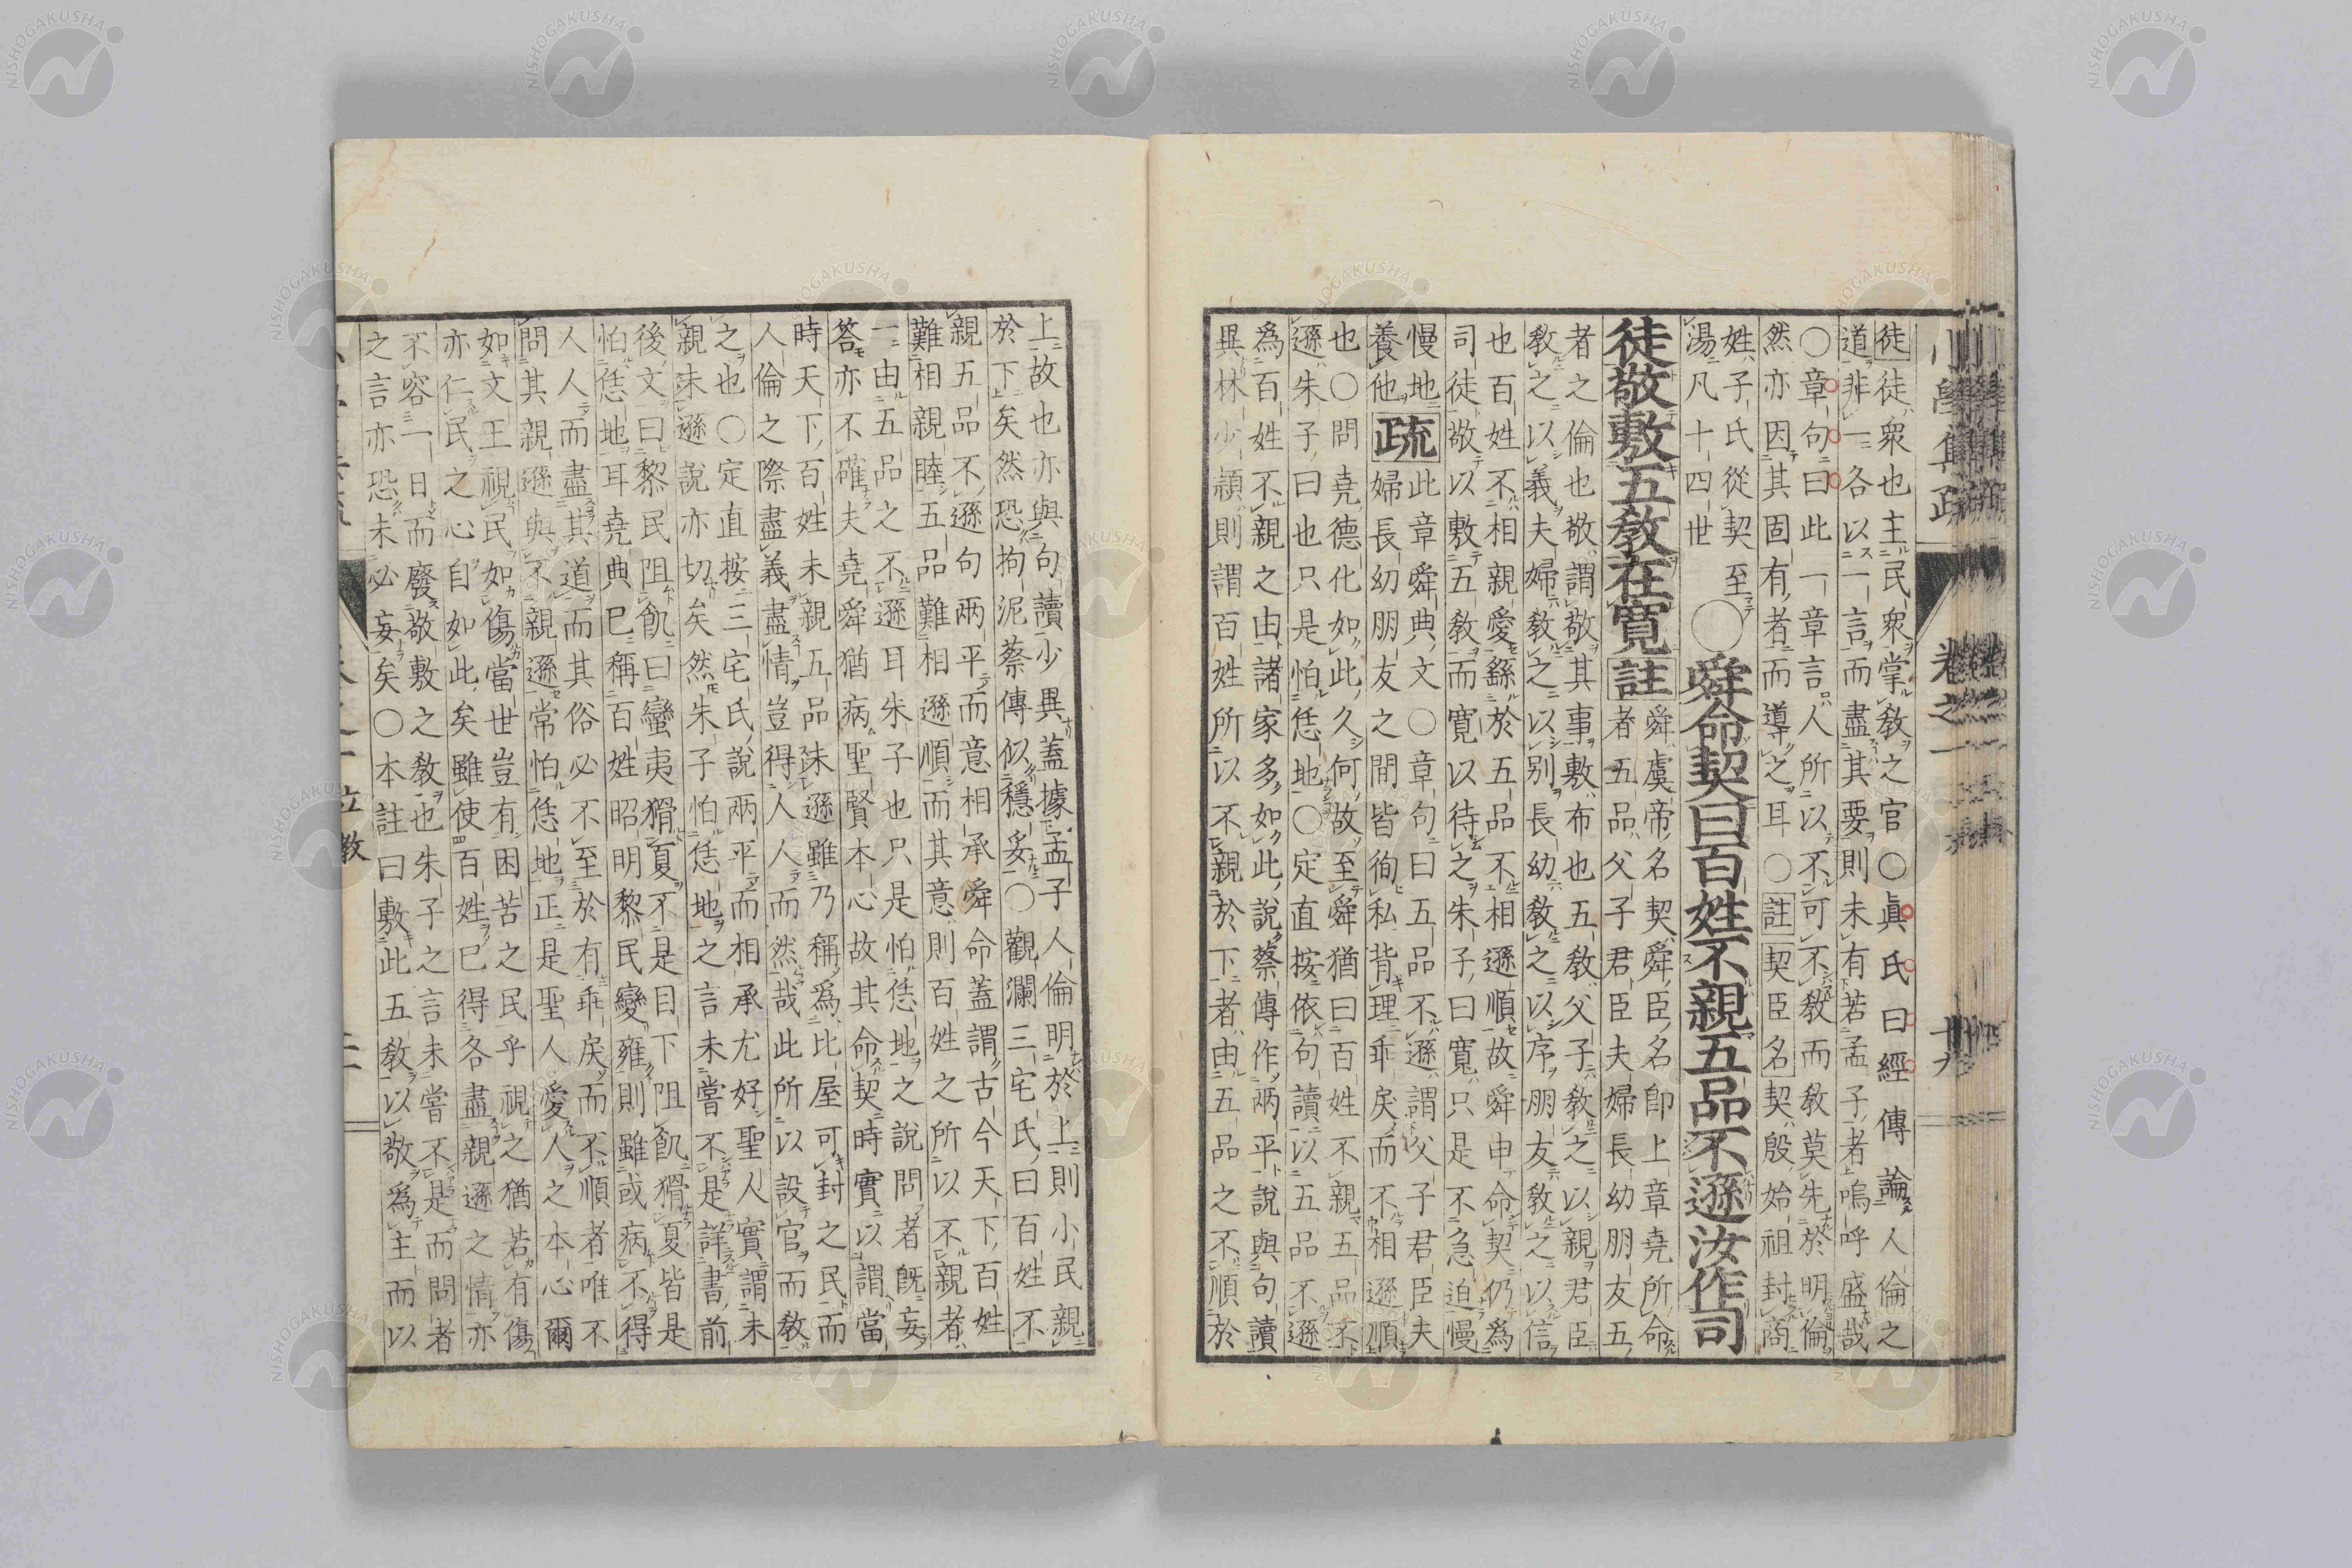 小學集疏　卷之一
徒徒衆也主民衆掌教之官○眞氏曰經傳論人倫之
道非一各以一言而盡其要則未有若孟子者嗚呼盛哉
○章句曰此一章言人所以不可不教而教莫先於明倫
然亦因其固有者而導之耳○註契臣名契殷始祖封商
姓子氏從契至
湯凡十四世
○舜命契曰百姓不親五品不遜汝作司
徒敬敷五教在寬註
舜虞帝名契舜臣名卽上章堯所命
者五品父子君臣夫婦長幼朋友五
者之倫也敬謂敬其事敷布也五教父子教之以親君臣
教之以義夫婦教之以别長幼教之以序朋友教之以信
也百姓不相親愛繇於五品不相遜順故舜申命契仍爲
司徒敬以敷五教而寬以待之朱子曰寬只是不急迫慢
慢地
養他
疏
此章舜典文○章句曰五品不遜謂父子君臣夫
婦長幼朋友之間皆徇私背理乖戾而不相遜順
也○問堯德化如此久何故至舜猶曰百姓不親五品不
遜朱子曰也只是怕恁地○定直按依句讀以五品不遜
爲百姓不親之由諸家多如此說蔡傳作兩平說與句讀
異林少頴則謂百姓所以不親於下者由五品之不順於
上故也亦與句讀少異蓋據孟子人倫明於上則小民親
於下矣然恐拘泥蔡傳似穩妥○觀瀾三宅氏曰百姓不
親五品不遜句兩平而意相承舜命蓋謂古今天下百姓
難相親睦五品難相遜順而其意則百姓之所以不親者
一由五品之不遜耳朱子也只是怕恁地之說問者旣妄
答亦不確夫堯舜猶病聖賢本心故其命契時實以謂當
時天下百姓未親五品未遜雖乃稱爲比屋可封之民而
人倫之際盡義盡情豈得人人而然哉此所以設官而教
之也○定直按三宅氏說兩平而相承尤好聖人實謂未
親未遜說亦切矣然朱子怕恁地之言未嘗不是詳書前
後文曰黎民阻飢曰蠻夷猾夏不是目下阻飢猾夏皆是
怕恁地耳堯典已稱百姓昭明黎民變雍則雖或病不得
人人而盡其道而其俗必不至於有乖戾而不順者唯不
問其親遜與不親遜常怕恁地正是聖人愛人之本心爾
如文王視民如傷當世豈有困苦之民乎視之猶若有傷
亦仁民之心自如此矣雖使百姓已得各盡親遜之情亦
不容一日而廢敬敷之教也朱子之言未嘗不是而問者
之言亦恐未必妄矣○本註曰敷此五教以敬爲主而以
立教